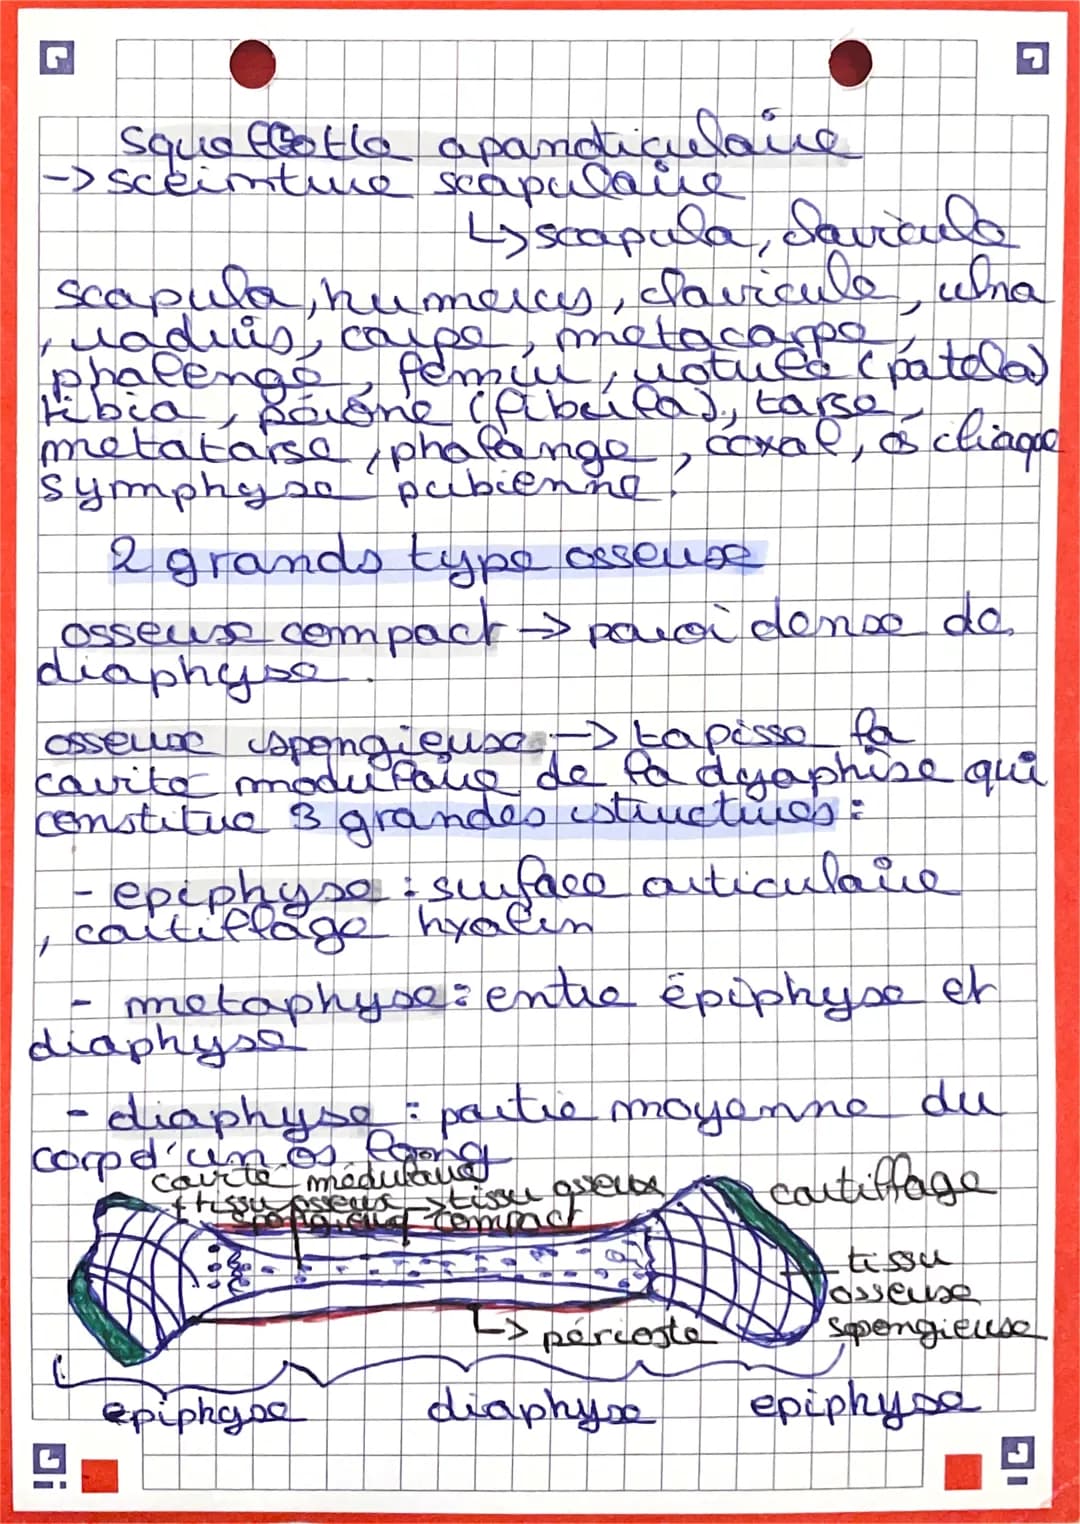 squellette apandiculaire
-> sceinture scapulaire
↳ scapula, clavicule
scapula, humerus, clavicule, ulna
, raduis, carpe, metacarpe,
phalenge, fémur, rotule (patela)
tibia, péroné (fibula), tarse,
metatarse, phalange, coxal, os iliaque
symphyse pubienne.
2 grands type osseuse
osseuse compact -> paroi dense de
diaphyse.
osseuse spongieuse -> tapisse la
cavite medullaire de la dyaphise qui
constitue 3 grandes structures :
- epiphyse : surface articulaire
, cartillage hyalin
- metaphyse : entre épiphyse et
diaphyse
- diaphyse : partie moyenne du
corp d'un os long
cavite médullaire
tissu osseux spongieux
-> tissu osseux compact
cartillage
tissu
osseuse
spongieuse
↳ périoste
epiphyse diaphyse epiphyse